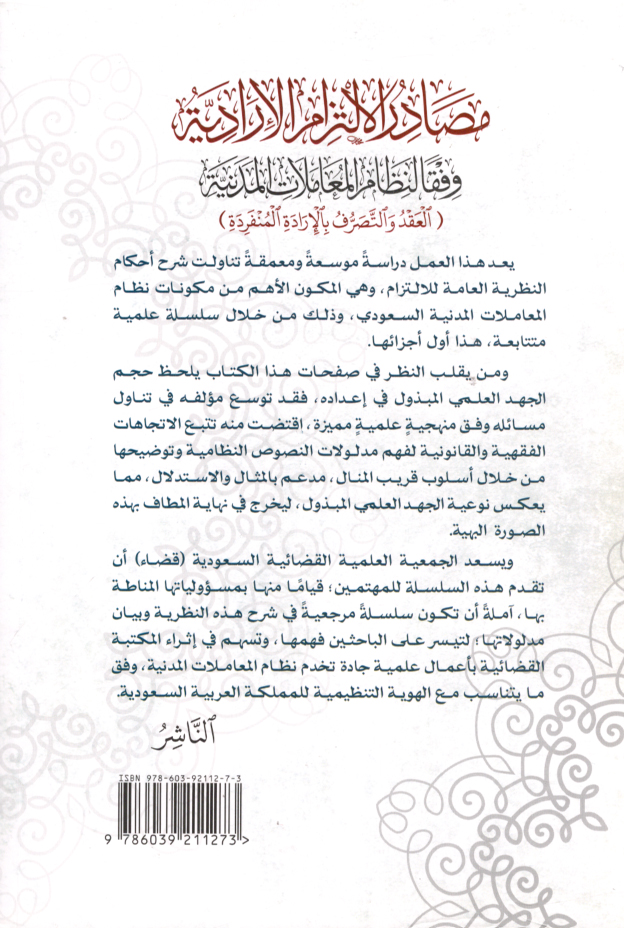 مَصَادِرُ الالْتِزَامِ الإِرَادِيَّةِ
وِفْقًا لِنِظَامِ المُعَامَلَاتِ المَدَنِيَّةِ
( العَقْدُ وَالتَّصَرُّفُ بِالإِرَادَةِ المُنْفَرِدَةِ )
يعد هذا العمل دراسةً موسعةً ومعمقةً تناولت شرح أحكام
النظرية العامة للالتزام، وهي المكون الأهم من مكونات نظام
المعاملات المدنية السعودي، وذلك من خلال سلسلة علمية
متتابعة، هذا أول أجزائها.
ومن يقلب النظر في صفحات هذا الكتاب يلحظ حجم
الجهد العلمي المبذول في إعداده، فقد توسع مؤلفه في تناول
مسائله وفق منهجيةٍ علميةٍ مميزة، اقتضت منه تتبع الاتجاهات
الفقهية والقانونية لفهم مدلولات النصوص النظامية وتوضيحها
من خلال أسلوب قريب المنال، مدعم بالمثال والاستدلال، مما
يعكس نوعية الجهد العلمي المبذول، ليخرج في نهاية المطاف بهذه
الصورة البهية.
ويسعد الجمعية العلمية القضائية السعودية (قضاء) أن
تقدم هذه السلسلة للمهتمين؛ قيامًا منها بمسؤولياتها المناطة
بها، آملةً أن تكون سلسلةً مرجعيةً في شرح هذه النظرية وبيان
مدلولاتها؛ لتيسر على الباحثين فهمها، وتسهم في إثراء المكتبة
القضائية بأعمال علمية جادة تخدم نظام المعاملات المدنية، وفق
ما يتناسب مع الهوية التنظيمية للمملكة العربية السعودية.
النَّاشِرُ
ISBN 978-603-92112-7-3
9 786039 211273 >